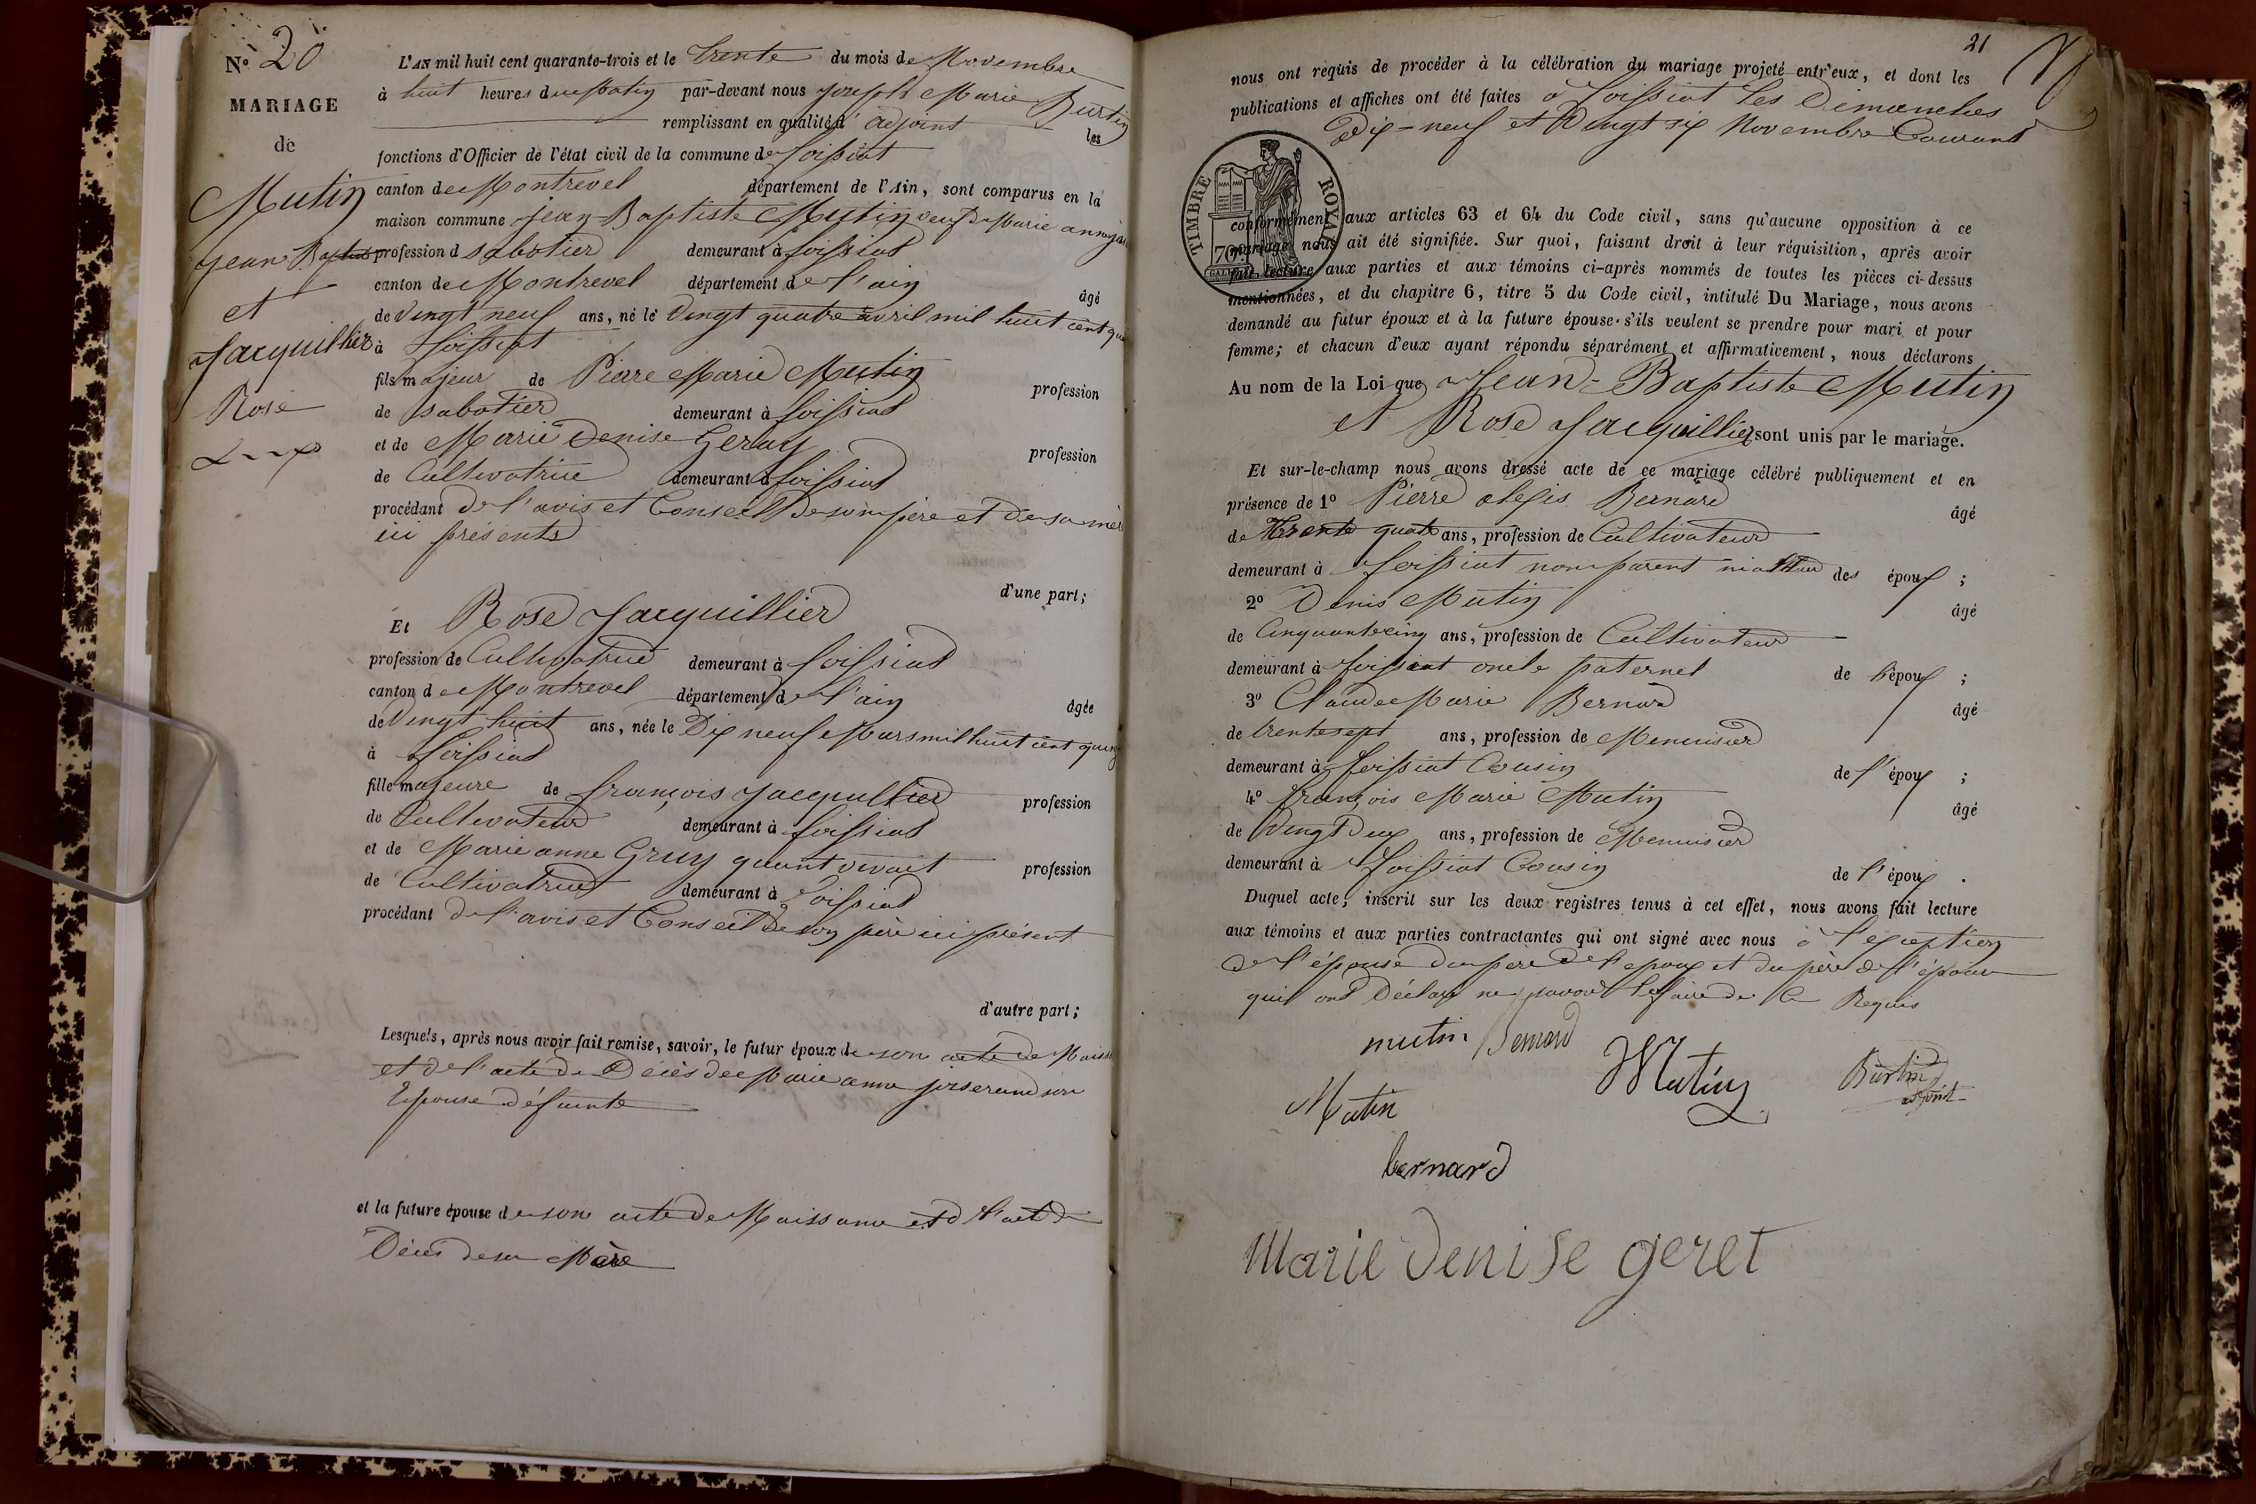 N° 20
MARIAGE
de
Mutin
Jean Baptiste
et
Jacquillier
Rose
L'AN mil huit cent quarante-trois et le trente du mois de Novembre
à huit heures du Matin par-devant nous Joseph Marie Burtin
remplissant en qualité d'adjoint les
fonctions d'Officier de l'état civil de la commune de foissiat
canton de Montrevel département de l'Ain, sont comparus en la
maison commune Jean-Baptiste Mutin veuf de Marie anne
profession d sabotier demeurant à foissiat
canton de Montrevel département de l'ain
âgé
de vingt neuf ans, né le vingt quatre avril mil huit cent
à foissiat
fils majeur de Pierre Marie Mutin
profession
de sabotier demeurant à foissiat
et de Marie Denise Geray
profession
de Cultivatrice demeurant à foissiat
procédant de l'avis et Conseil de son père et de sa mère
ici présents
d'une part;
Et Rose Jacquillier
profession de Cultivatrice demeurant à foissiat
canton de Montrevel département de l'ain
âgée
de vingt huit ans, née le Dix neuf Mars mil huit cent quinze
à foissiat
fille majeure de françois Jacquillier profession
de Cultivateur demeurant à foissiat
et de Marie anne Gruy quant vivait profession
de Cultivatrice demeurant à foissiat
procédant de l'avis et Conseil de son père ici présent
d'autre part;
Lesquels, après nous avoir fait remise, savoir, le futur époux de son acte de Naiss
et de l'acte de Décès de Marie anne joserand son
Epouse défunte
et la future épouse de son acte de Naissance et d l'act de
Décès de sa Mère
21
nous ont requis de procéder à la célébration du mariage projeté entr'eux, et dont les
publications et affiches ont été faites à foissiat les Dimanches
Dix-neuf et Vingt six Novembre Courant
TIMBRE ROYAL
conformément aux articles 63 et 64 du Code civil, sans qu'aucune opposition à ce
mariage nous ait été signifiée. Sur quoi, faisant droit à leur réquisition, après avoir
fait lecture aux parties et aux témoins ci-après nommés de toutes les pièces ci-dessus
mentionnées, et du chapitre 6, titre 5 du Code civil, intitulé Du Mariage, nous avons
demandé au futur époux et à la future épouse s'ils veulent se prendre pour mari et pour
femme; et chacun d'eux ayant répondu séparément et affirmativement, nous déclarons
Au nom de la Loi que Jean-Baptiste Mutin
et Rose Jacquillier sont unis par le mariage.
Et sur-le-champ nous avons dressé acte de ce mariage célébré publiquement et en
présence de 1° Pierre alexis Bernard
âgé
de trente quatre ans, profession de Cultivateur
demeurant à foissiat non parent ni allié des époux ;
2° Denis Mutin
âgé
de Cinquante cinq ans, profession de Cultivateur
demeurant à foissiat oncle paternel de l'époux ;
3° Claude Marie Bernard
âgé
de trente sept ans, profession de Menuisier
demeurant à foissiat Cousin de l'époux ;
4° françois Marie Mutin
âgé
de Vingt Deux ans, profession de Menuisier
demeurant à foissiat Cousin de l'époux .
Duquel acte, inscrit sur les deux registres tenus à cet effet, nous avons fait lecture
aux témoins et aux parties contractantes qui ont signé avec nous à l'exception
de l'épouse du pere de l'epoux et du père de l'épouse
qui ont Déclaré ne savoir le faire de ce Requis
mutin Bernard
Mutin
Burtin
adjoint
Mutin
bernard
Marie denise geret